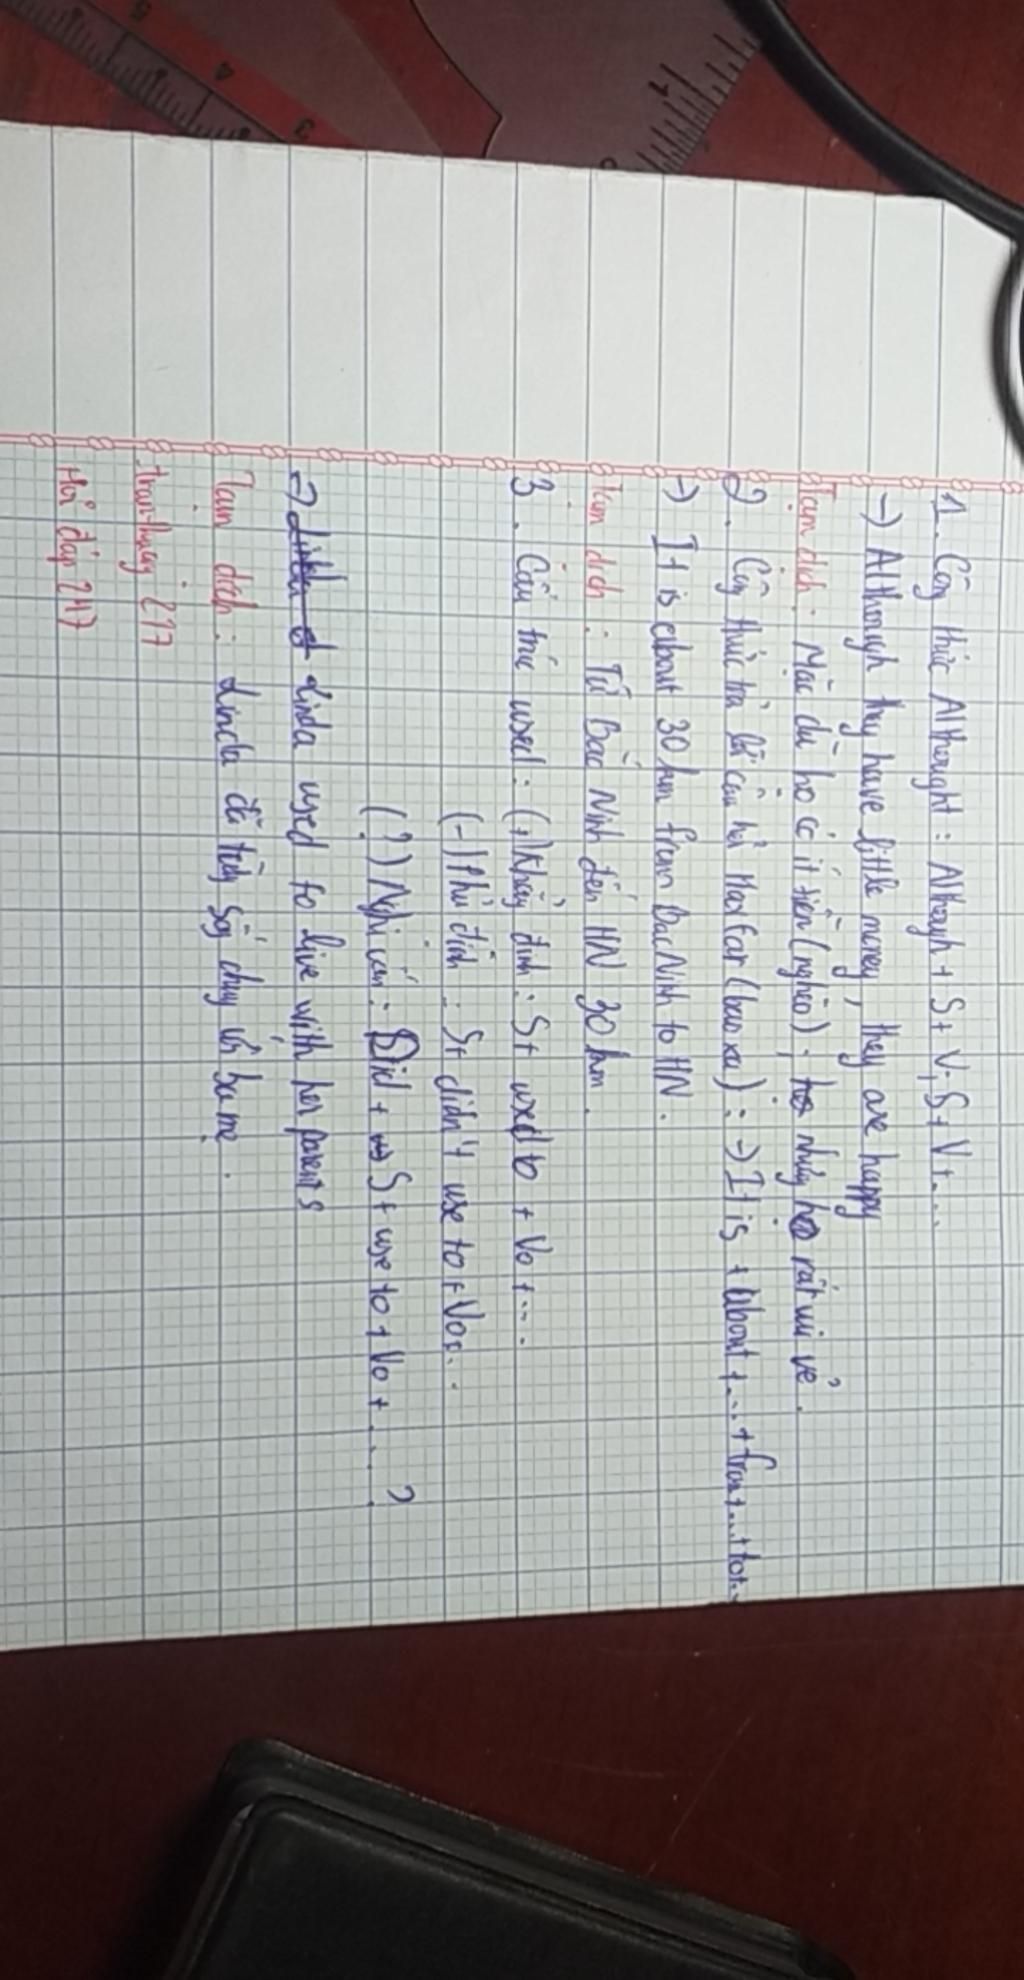 1. Công thức Althought : Although + S + V, S + V + ...
-) Although they have little money, they are happy
Tạm dịch : Mặc dù họ có ít tiền (nghèo), nhưng họ rất vui vẻ.
2. Công thức trả lời câu hỏi How far (bao xa) : -) It is + about + ... + from + ... + to + ..
-) It is about 30 km from Bac Ninh to HN.
Tạm dịch : Từ Bắc Ninh đến HN 30 km.
3. Cấu trúc used : (+) Khẳng định : S + used to + Vo + ...
(-) Phủ định : S + didn't use to + Vo + ..
(?) Nghi vấn : Did + S + use to + Vo + .... ?
=) Linda used to live with her parents
Tạm dịch : Linda đã từng sống chung với ba mẹ.
Hỏi đáp 247
3
4
5
0
1